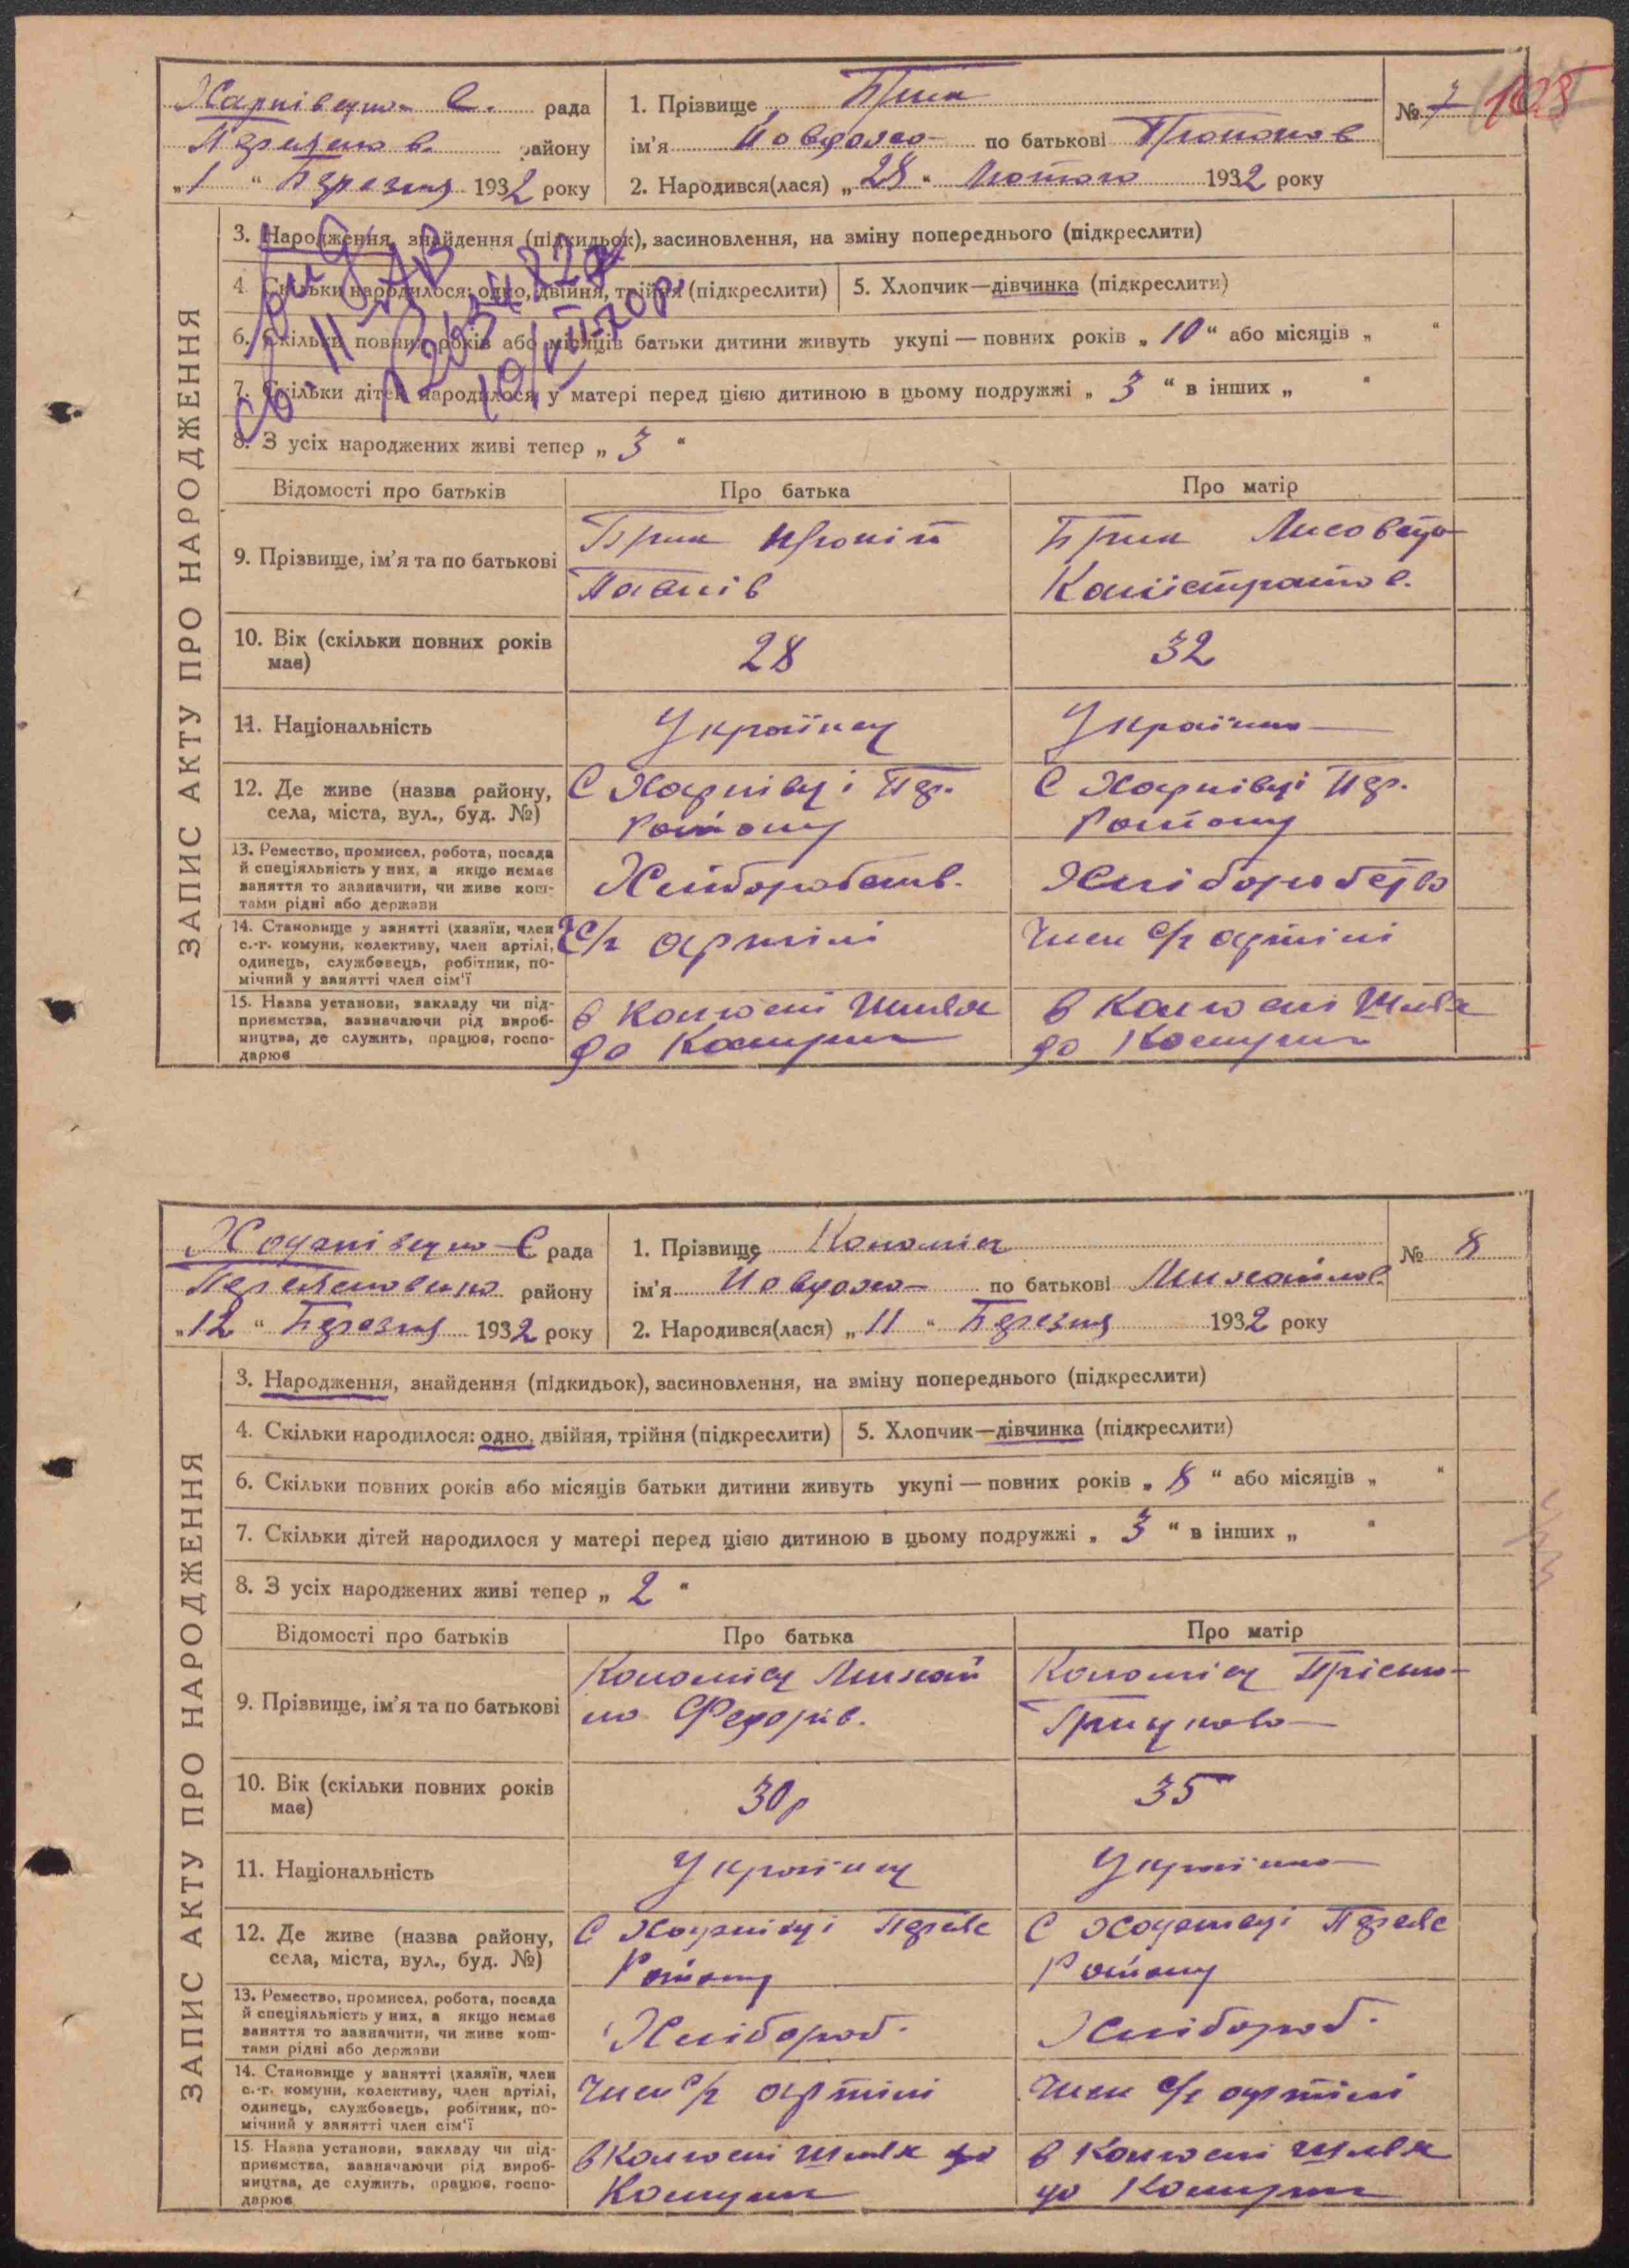 рада
1. Прізвище Брик
№ 7
районy
ім'я Йовдоха по батькові
„1“ Березня 1932 року
2. Народився(лася) „28“ Лютого 1932 року
ЗАПИС АКТУ ПРО НАРОДЖЕННЯ
3. Народження, знайдення (підкидьок), засиновлення, на зміну попереднього (підкреслити)
4. Скільки народилося: одно, двійня, трійня (підкреслити)
5. Хлопчик—дівчинка (підкреслити)
6. Скільки повних років або місяців батьки дитини живуть укупі — повних років „10“ або місяців „ “
7. Скільки дітей народилося у матері перед цією дитиною в цьому подружжі „3“ в інших „ “
8. З усіх народжених живі тепер „3“
Відомості про батьків
Про батька
Про матір
9. Прізвище, ім'я та по батькові
Брик Прокіп
Павлів
Брик Лисовета
Калістратов.
10. Вік (скільки повних років має)
28
32
11. Національність
Українец
Українка
12. Де живе (назва району, села, міста, вул., буд. №)
С Хоцківці Пер.
Району
С Хоцківці Пер.
Району
13. Ремество, промисел, робота, посада й спеціяльність у них, а якщо немає заняття то зазначити, чи живе коштами рідні або держави
Хліборобств.
Хліборобство
14. Становище у занятті (хазяїн, член с.-г. комуни, колективу, член артілі, одинець, службовець, робітник, помічний у занятті член сім'ї
С/г артілі
Член С/г артілі
15. Назва установи, закладу чи підприємства, зазначаючи рід виробництва, де служить, працює, господарює
в Колгоспі Шлях
до Комуни
в Колгоспі Шлях
до Комуни
рада
1. Прізвище Коломієц
№ 8
району
ім'я Йовдоха по батькові Михайлов.
„12“ Березня 1932 року
2. Народився(лася) „11“ Березня 1932 року
ЗАПИС АКТУ ПРО НАРОДЖЕННЯ
3. Народження, знайдення (підкидьок), засиновлення, на зміну попереднього (підкреслити)
4. Скільки народилося: одно, двійня, трійня (підкреслити)
5. Хлопчик—дівчинка (підкреслити)
6. Скільки повних років або місяців батьки дитини живуть укупі — повних років „8“ або місяців „ “
7. Скільки дітей народилося у матері перед цією дитиною в цьому подружжі „3“ в інших „ “
8. З усіх народжених живі тепер „2“
Відомості про батьків
Про батька
Про матір
9. Прізвище, ім'я та по батькові
Коломієц Михай
ло Федорів.
Коломієц
Грицькова
10. Вік (скільки повних років має)
30р
35
11. Національність
Українец
Українка
12. Де живе (назва району, села, міста, вул., буд. №)
С Хоцківці Переяс
Району
С Хоцківці Переяс
Району
13. Ремество, промисел, робота, посада й спеціяльність у них, а якщо немає заняття то зазначити, чи живе коштами рідні або держави
Хлібороб.
Хлібороб.
14. Становище у занятті (хазяїн, член с.-г. комуни, колективу, член артілі, одинець, службовець, робітник, помічний у занятті член сім'ї
Член С/г артілі
Член С/г артілі
15. Назва установи, закладу чи підприємства, зазначаючи рід виробництва, де служить, працює, господарює
в Колгоспі Шлях до
Комуни
в Колгоспі Шлях
до Комуни